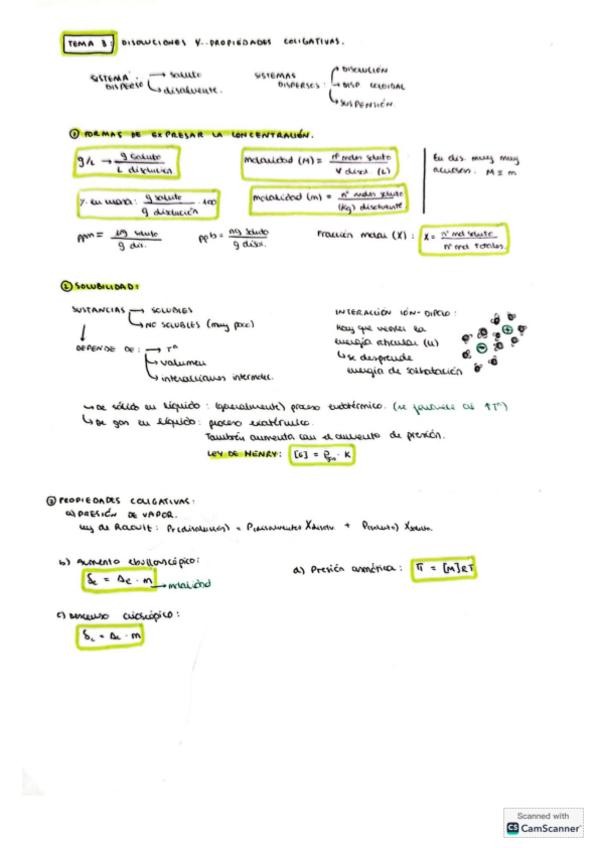 TEMA 3: DISOLUCIONES Y PROPIEDADES COLIGATIVAS.
SISTEMA DISPERSO → soluto
→ disolvente.
SISTEMAS DISPERSOS: → DISOLUCIÓN
→ DISP COLOIDAL
→ SUSPENSIÓN
① FORMAS DE EXPRESAR LA CONCENTRACIÓN.
g/L → g soluto / L disolución
molaridad (M) = nº moles soluto / V disol (L)
En dis. muy muy
acuosas. M ≅ m
% en masa: g soluto / g disolución · 100
molalidad (m) = nº moles soluto / (Kg) disolvente
ppm = µg soluto / g dis.
ppb = ng soluto / g disol.
Fracción molar (X): X = nº mol soluto / nº mol totales.
② SOLUBILIDAD:
SUSTANCIAS → SOLUBLES
→ NO SOLUBLES (muy poco)
DEPENDE DE: → Tª
→ volumen
→ interacciones intermolec.
INTERACCIÓN IÓN-DIPOLO:
Hay que vencer la
energía reticular (U)
↳ se desprende
energía de solvatación
↳ De sólido en líquido: (generalmente) proceso endotérmico. (se favorece al ↑Tª)
↳ De gas en líquido: proceso exotérmico.
También aumenta con el aumento de presión.
LEY DE HENRY: [G] = Pgas · K
③ PROPIEDADES COLIGATIVAS:
a) PRESIÓN DE VAPOR.
Ley de Raoult: P(disolución) = P(disolvente) Xdisolv. + P(soluto) Xsoluto.
b) Aumento ebulloscópico:
δe = Δe · m → molalidad
d) Presión osmótica: π = [M]RT
c) Descenso crioscópico:
δc = Δc · m
Scanned with
CS CamScanner